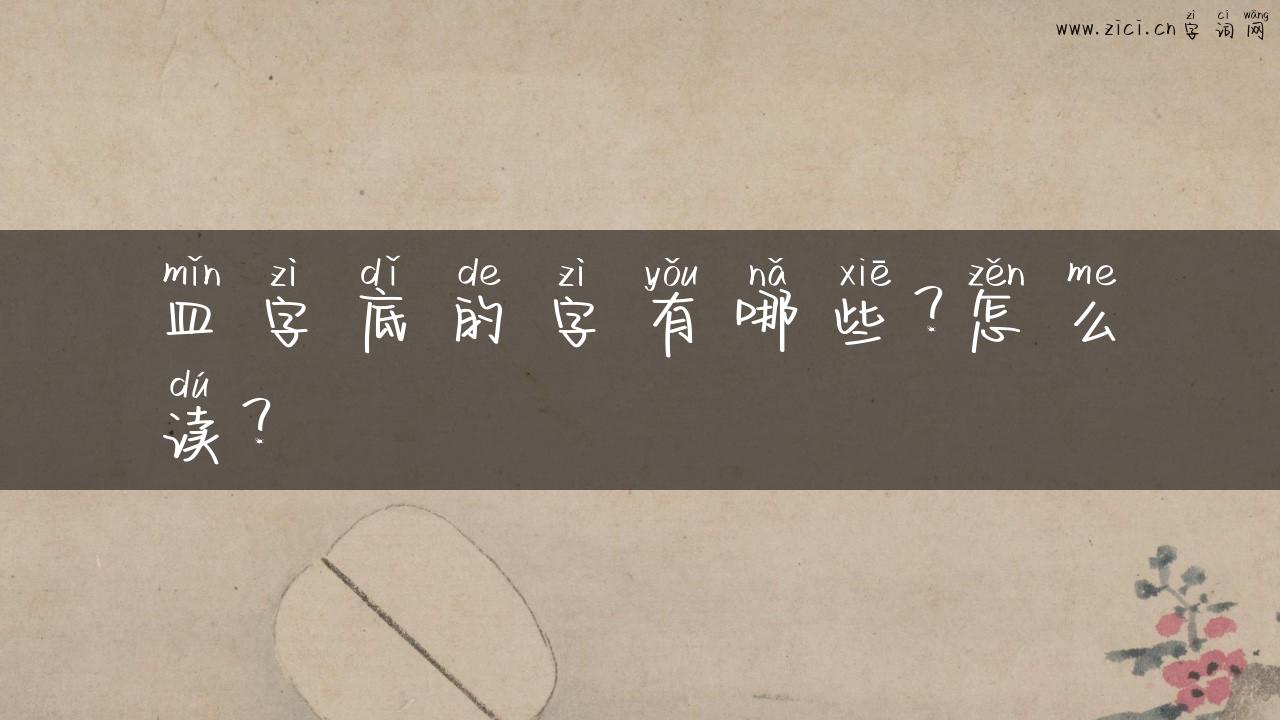 zì cí wǎng
www.zici.cn字词网
mǐn zì dǐ de zì yǒu nǎ xiē zěn me
皿字底的字有哪些？怎么
dú
读？